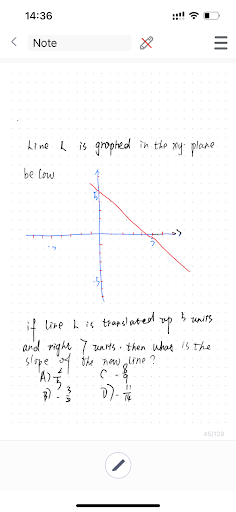 14:36
Note
Line L is graphed in the xy-plane
below
5
-5
5
-5
if line L is translated up 5 units
and right 7 units. then what is the
slope of the new line?
A) - 2/5 C - 8/9
B) - 3/2 D) - 11/14
45/109